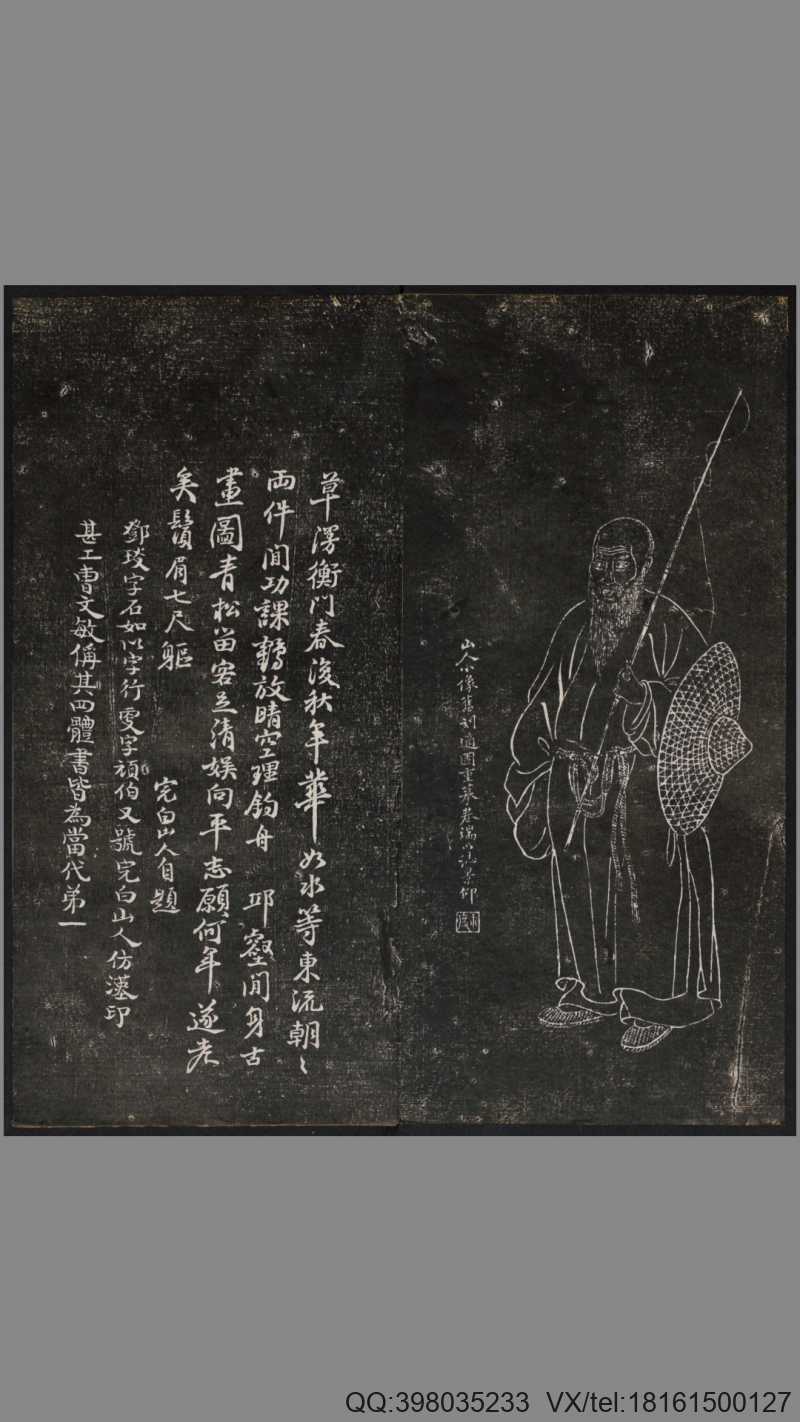 山人小像舊刻
草
衡門春復秋年華如水等東流朝〻
兩件閒功課鶴放晴空理釣舟 邱壑閒身古
畫圖青松留客足清娛向平志願何年遂老
矣鬚眉七尺軀
完白山人自題
鄧琰字石如以字行更字頑伯又號完白山人仿漢印
甚工曹文敏偁其四體書皆為當代弟一
QQ:398035233 VX/tel:18161500127